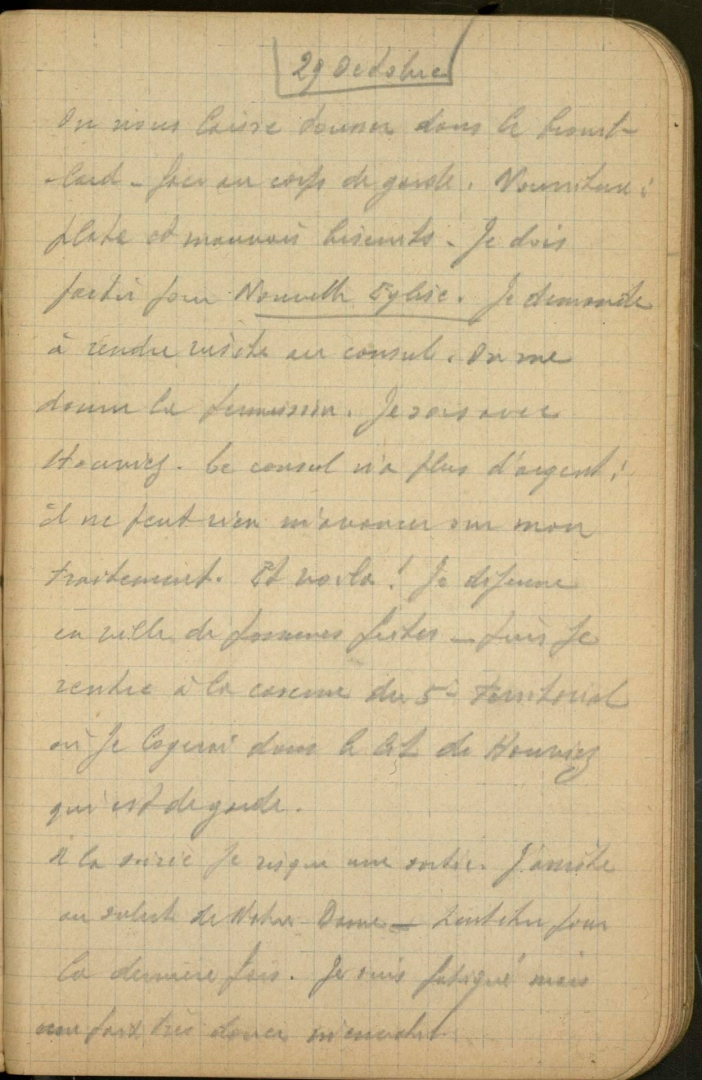 29 Octobre
On nous laisse dans le brouil-
lard - face au corps de garde. Nourriture :
plate et mauvais biscuits - Je dois
partir pour Nouvelle Eglise. Je demande
à rendre visite au consul. On me
donne la permission. Je vais avec
Houviez. Le consul n'a plus d'argent !
il ne peut rien m'avancer sur mon
traitement. Et voilà ! Je déjeune
en ville de pommes frites - puis je
rentre à la caserne du 5e Territorial
où je logerai dans le lit de Houviez
qui est de garde.
A la soirée je risque une sortie. J'assiste
au salut de Notre-Dame - peut-être pour
la dernière fois. Je suis fatigué mais
une paix très douce m'envahit